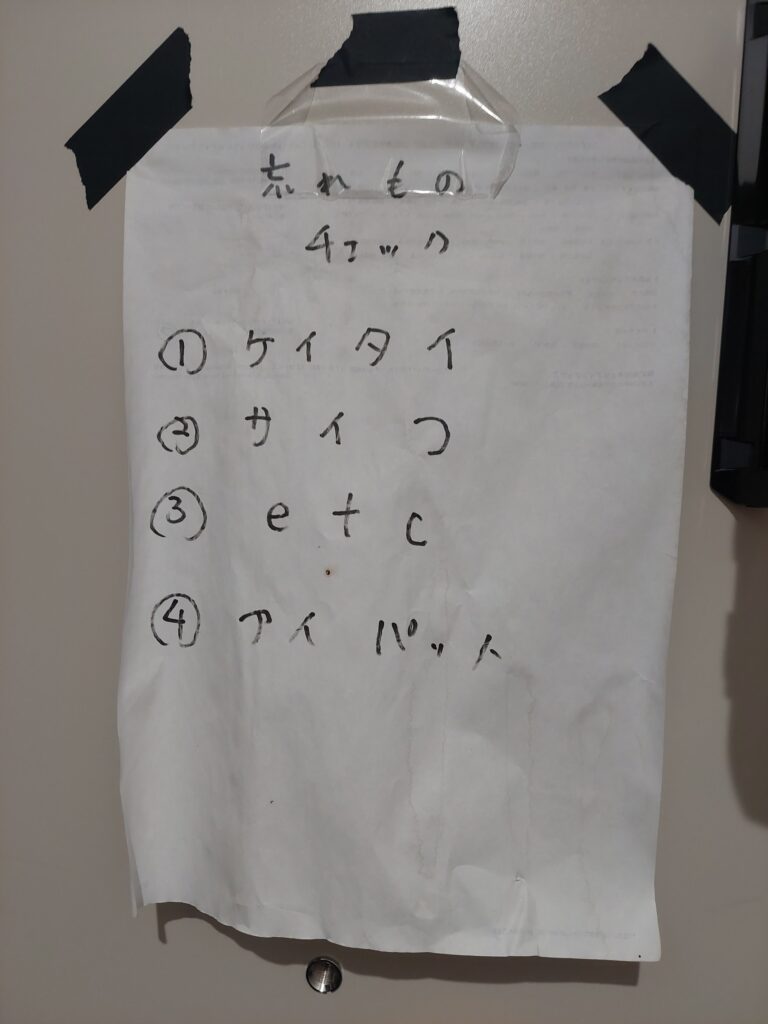 忘れもの
チェック
① ケイタイ
② サイフ
③ etc
④ アイパット